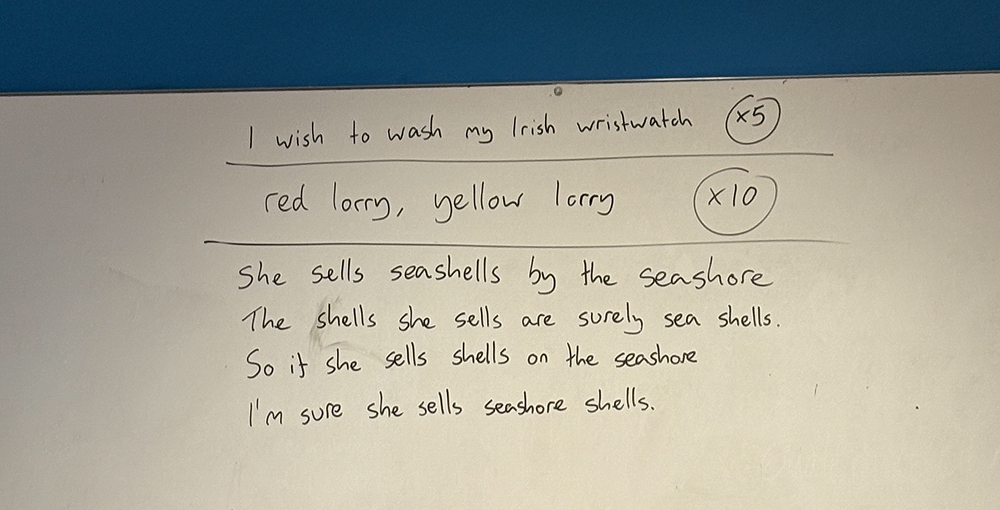 I wish to wash my Irish wristwatch x5
red lorry, yellow lorry x10
She sells seashells by the seashore
The shells she sells are surely sea shells.
So if she sells shells on the seashore
I'm sure she sells seashore shells.